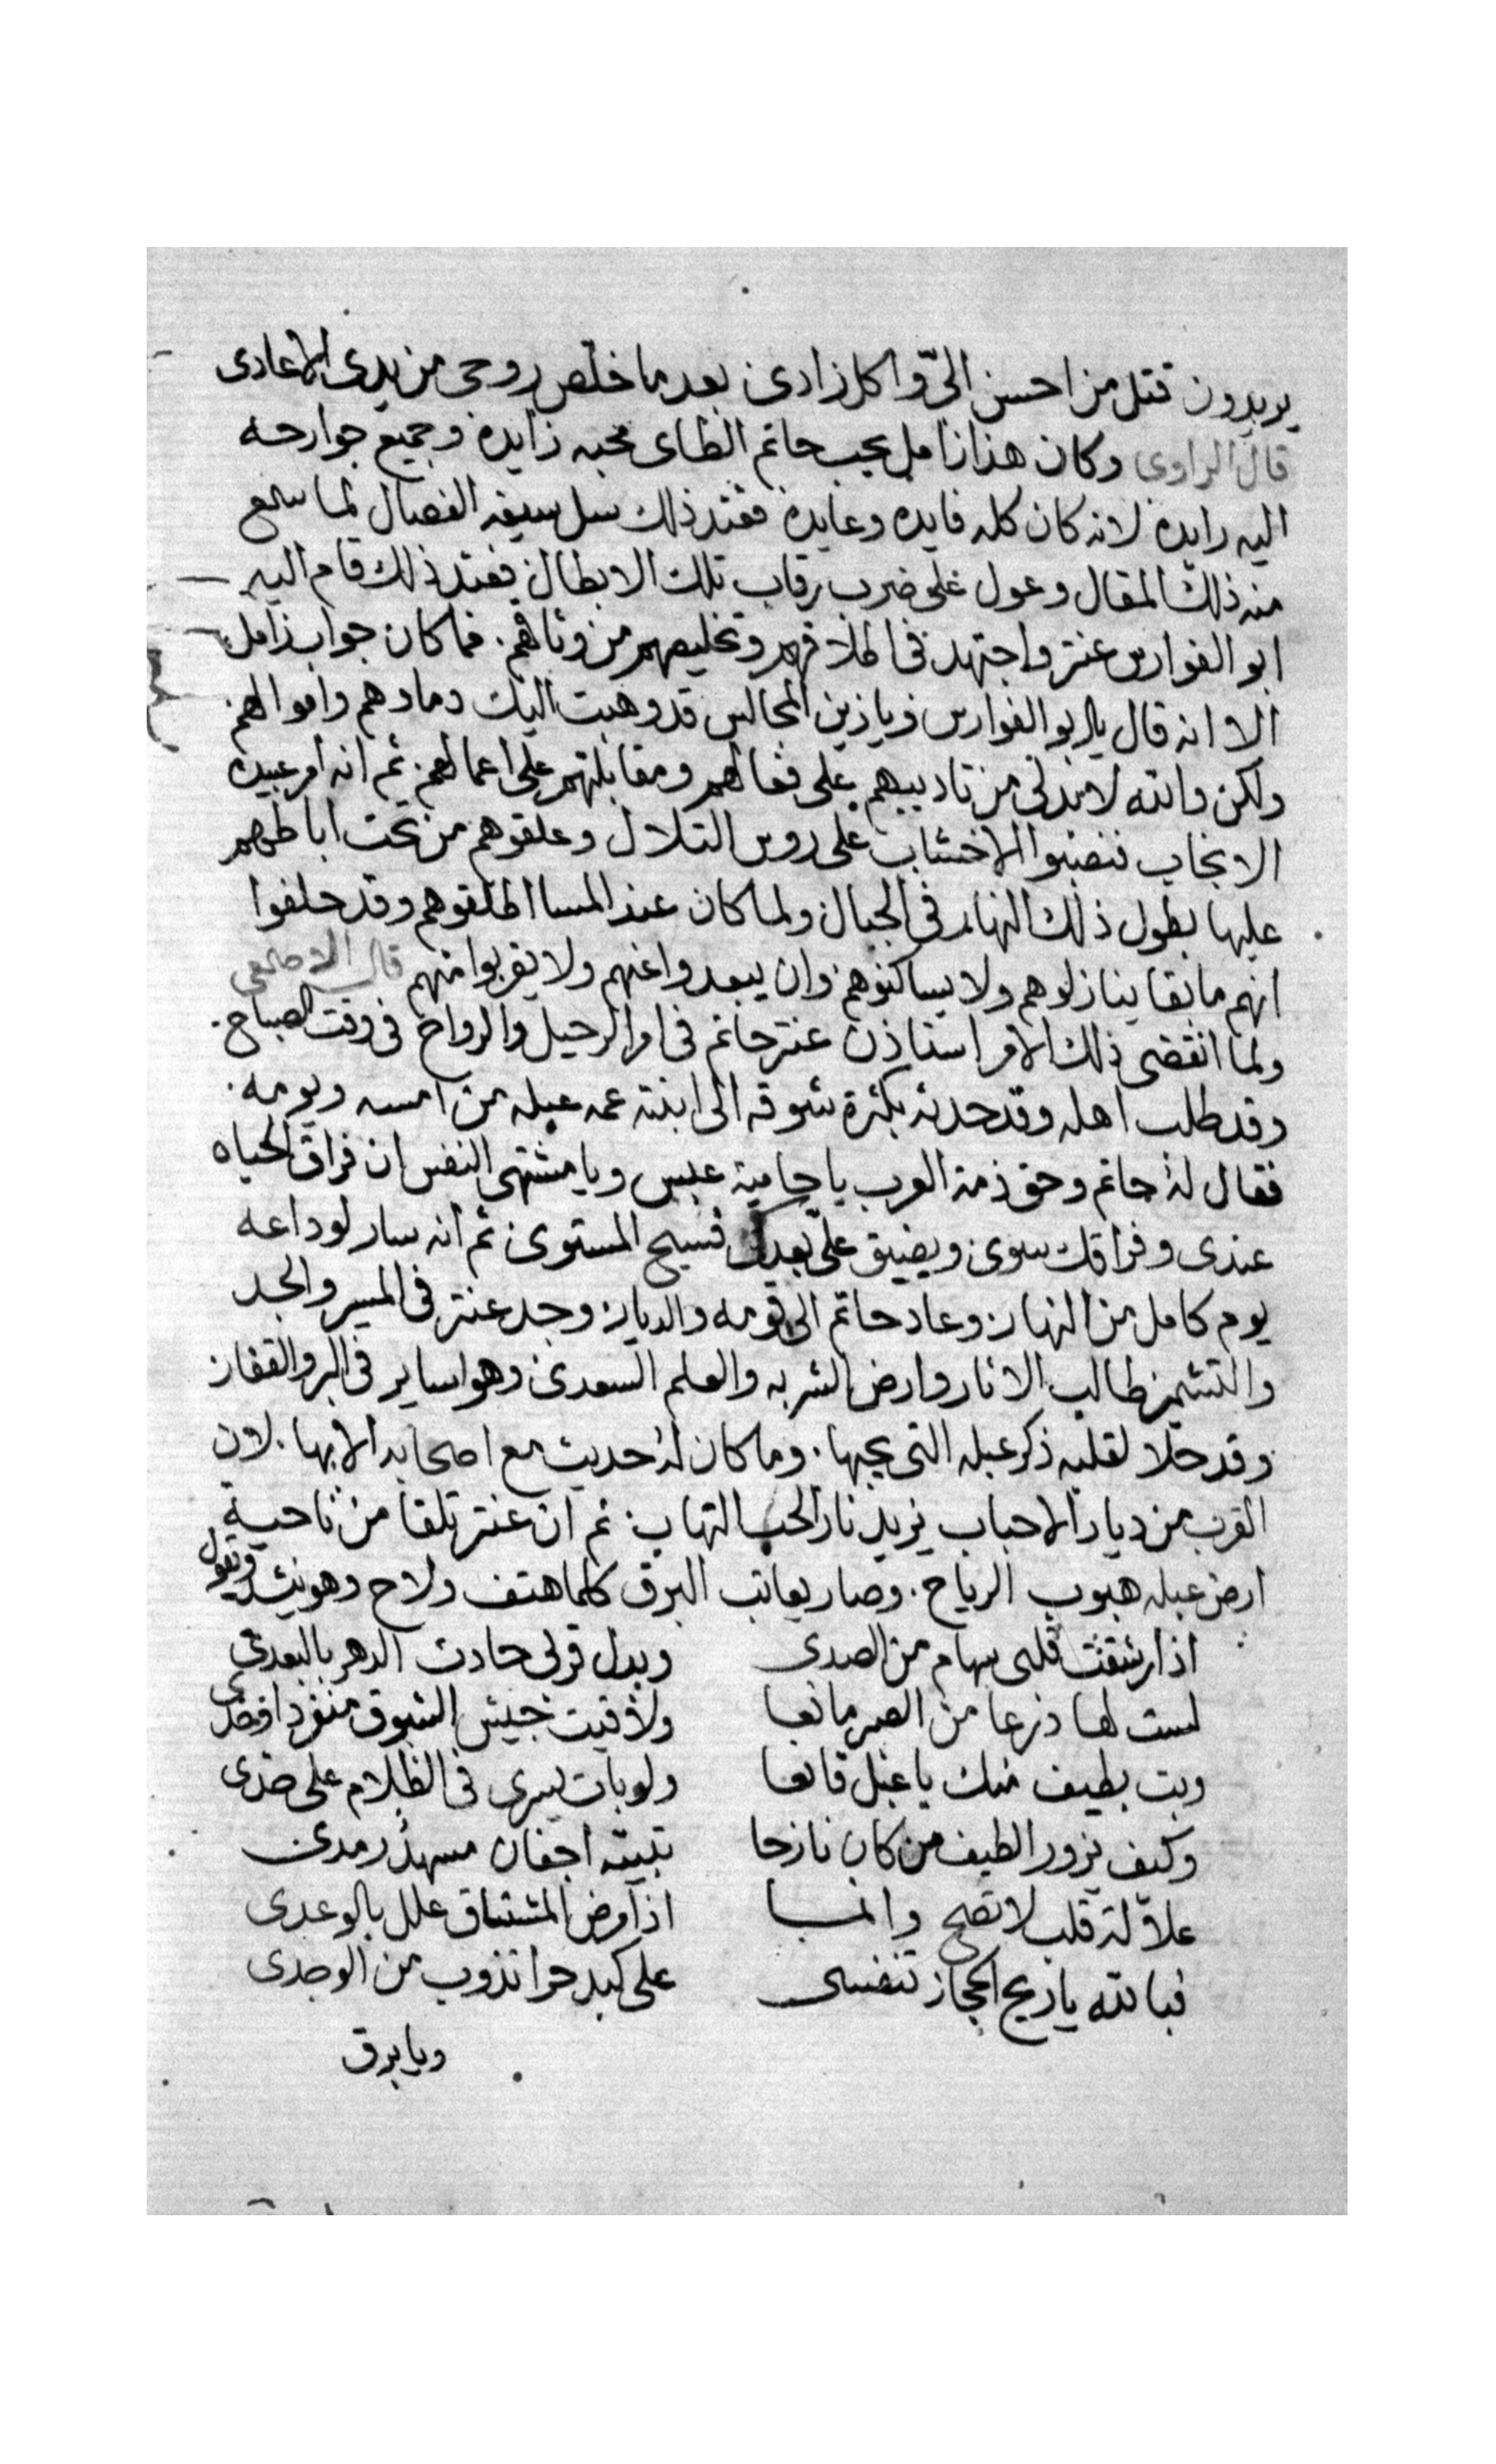 يريدون قتل من احسن اليّ واكل زادي بعد ما خلص روحي من يدي الاعادي
قال الراوي وكان هذا زامل يحب حاتم الطاي محبه زايده وجميع جوارحه
اليه رايده لانه كان كله فايده وعايده فعند ذلك سل سيفه الفصال لما سمع
منه ذلك المقال وعول على ضرب رقاب تلك الابطال فعند ذلك قام اليه
ابو الفوارس عنتر واجتهد في اطلاقهم وتخليصهم من وثاقهم. فما كان جواب زامل
الا انه قال يا ابو الفوارس ويا زين المجالس قد وهبت اليك دماوهم واموالهم
ولكن والله لا بد لي من تاديبهم على فعالهم ومقابلتهم على اعمالهم. ثم انه امر عبيده
الانجاب فنصبوا الاخشاب على روس التلال وعلقوهم من تحت اباطهم
عليها بطول ذلك النهار في الجبال ولما كان عند المسا اطلقوهم وقد حلفوا
انهم ما بقا ينازلوهم ولا يساكنوهم وان يبعدوا عنهم ولا يقربوا منهم قال الاصمعي
ولما انقضى ذلك الامر استاذن عنتر حاتم في امر الرحيل والرواح في وقت الصباح.
وقد طلب اهله وقد حدثه بكثرة شوقه الى ابنة عمه عبله من امسه ويومه.
فقال له حاتم وحق ذمة العرب يا حامية عبس ويا مشتهى النفس ان فراق الحياه
عندي وفراقك سوى ويضيق عليّ بعدك فسيح المستوى ثم انه سار لوداعه
يوم كامل من النهار وعاد حاتم الى قومه والديار وجد عنتر في المسير والجد
والتشمير طالب الاثار وارض الشربه والعلم السعدي وهو ساير في البر والقفار
وقد حلا لقلبه ذكر عبله التي يحبها. وما كان له حديث مع اصحابه الا بها. لان
القرب من ديار الاحباب يزيد نار الحب التهاب. ثم ان عنتر تلقا من ناحية
ارض عبله هبوب الرياح. وصار يعاتب البرق كلما هتف ولاح وهو ينشد ويقول
اذا رشقت قلبي سهام من الصدى وبدل قربي حادث الدهر بالبعدي
لبست لها درعا من الصبر مانعا ولاقيت جيش الشوق منفردا وحدي
وبت بطيف منك يا عبل قانعا ولو بات يسرى في الظلام على خدي
وكيف يزور الطيف من كان نازحا تبيته اجفان مسهد رمدي
علالة قلب لا تصح وانما اذا مرض المشتاق علل بالوعدي
فبالله يا ريح الحجاز تنفسي على كبد حرا تذوب من الوجدي
ويا برق